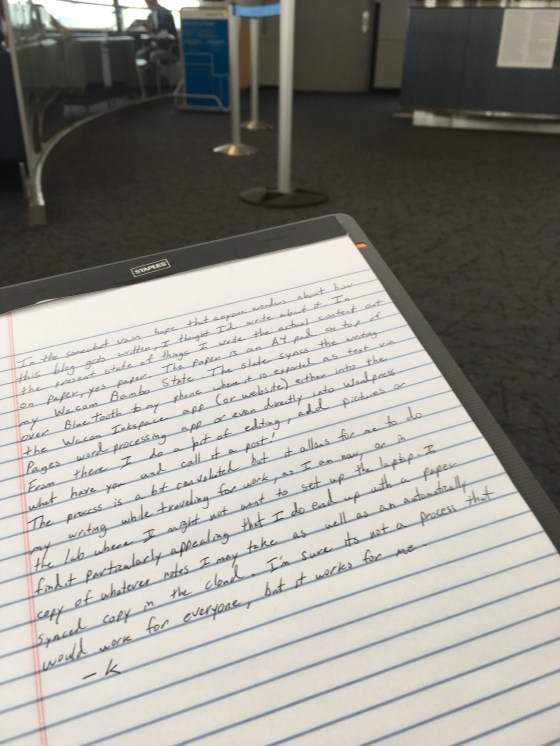 STAPLES
In the somewhat vain hope that anyone wonders about how
this blog gets written, I thought I'd write about it. In
the present state of things I write the actual content out
on paper, yes paper. The paper is an A4 pad on top of
my Wacom Bambo Slate. The slate syncs the writing
over BlueTooth to my phone where it is exported as text via
the Wacom Inkspace app (or website) either into the
Pages word processing app or even directly into Wordpress
From there I do a bit of editing, add pictures or
what have you and call it a post!
The process is a bit convoluted but it allows for me to do
my writing while traveling for work, as I am now, or in
the lab where I might not want to set up the laptop. I
find it particularly appealing that I do end up with a paper
copy of whatever notes I may take as well as an automatically
synced copy in the cloud. I'm sure its not a process that
would work for everyone, but it works for me
- K